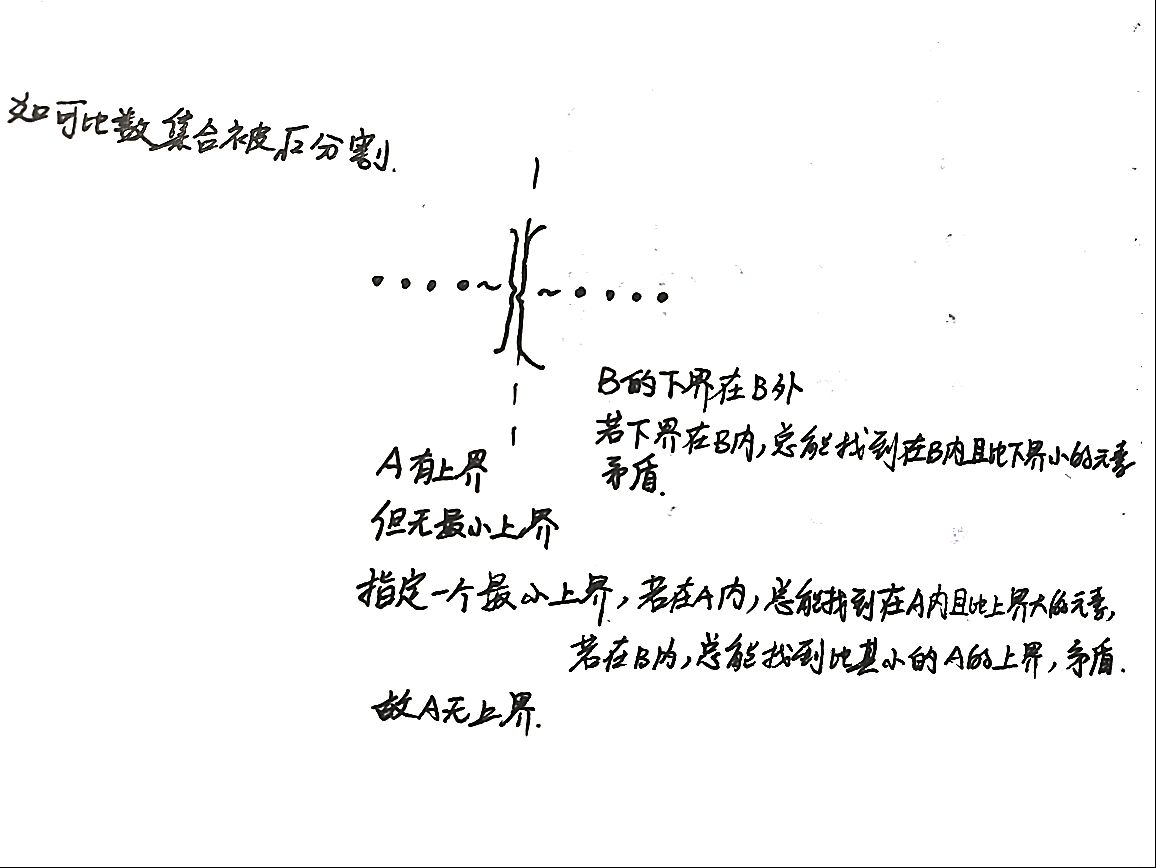 如可比数集合被√2分割.
B的下界在B外
若下界在B内,总能找到在B内且比下界小的元素
矛盾.
A有上界
但无最小上界
指定一个最小上界,若在A内,总能找到在A内且比上界大的元素,
若在B内,总能找到比其小的A的上界,矛盾.
故A无上界.